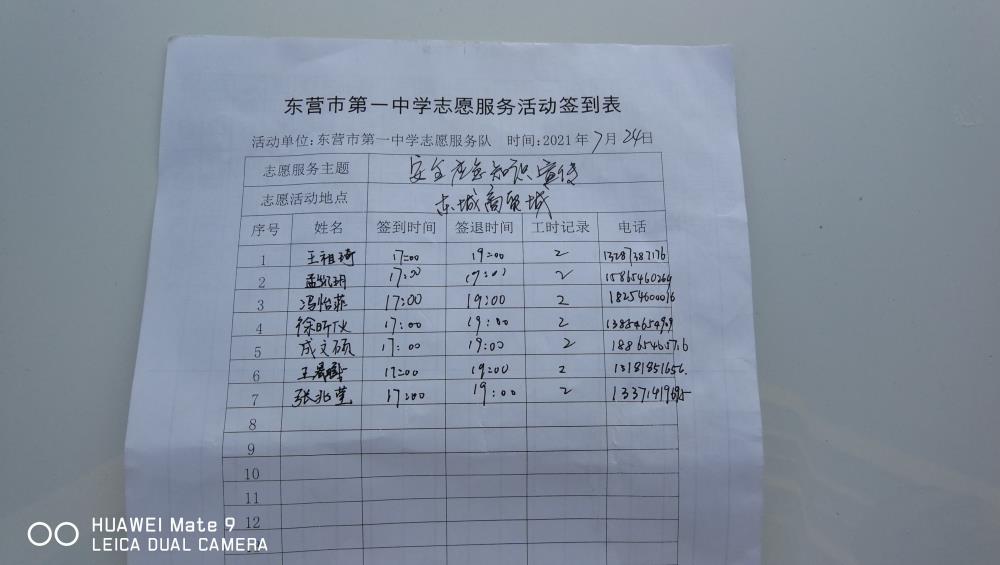 东营市第一中学志愿服务活动签到表
活动单位:东营市第一中学志愿服务队 时间:2021年7月24日
志愿服务主题 安全应急知识宣传
志愿活动地点 东城商贸城
序号 姓名 签到时间 签退时间 工时记录 电话
1 王祖琦 17:00 19:00 2 13287387176
2 17:00 19:00 2 15865460269
3 冯怡菲 17:00 19:00 2 18254600016
4 17:00 19:00 2
5 成文硕 17:00 19:00 2
6 17:00 19:00 2
7 张兆莹 17:00 19:00 2
8
9
10
11
12
HUAWEI Mate 9
LEICA DUAL CAMERA